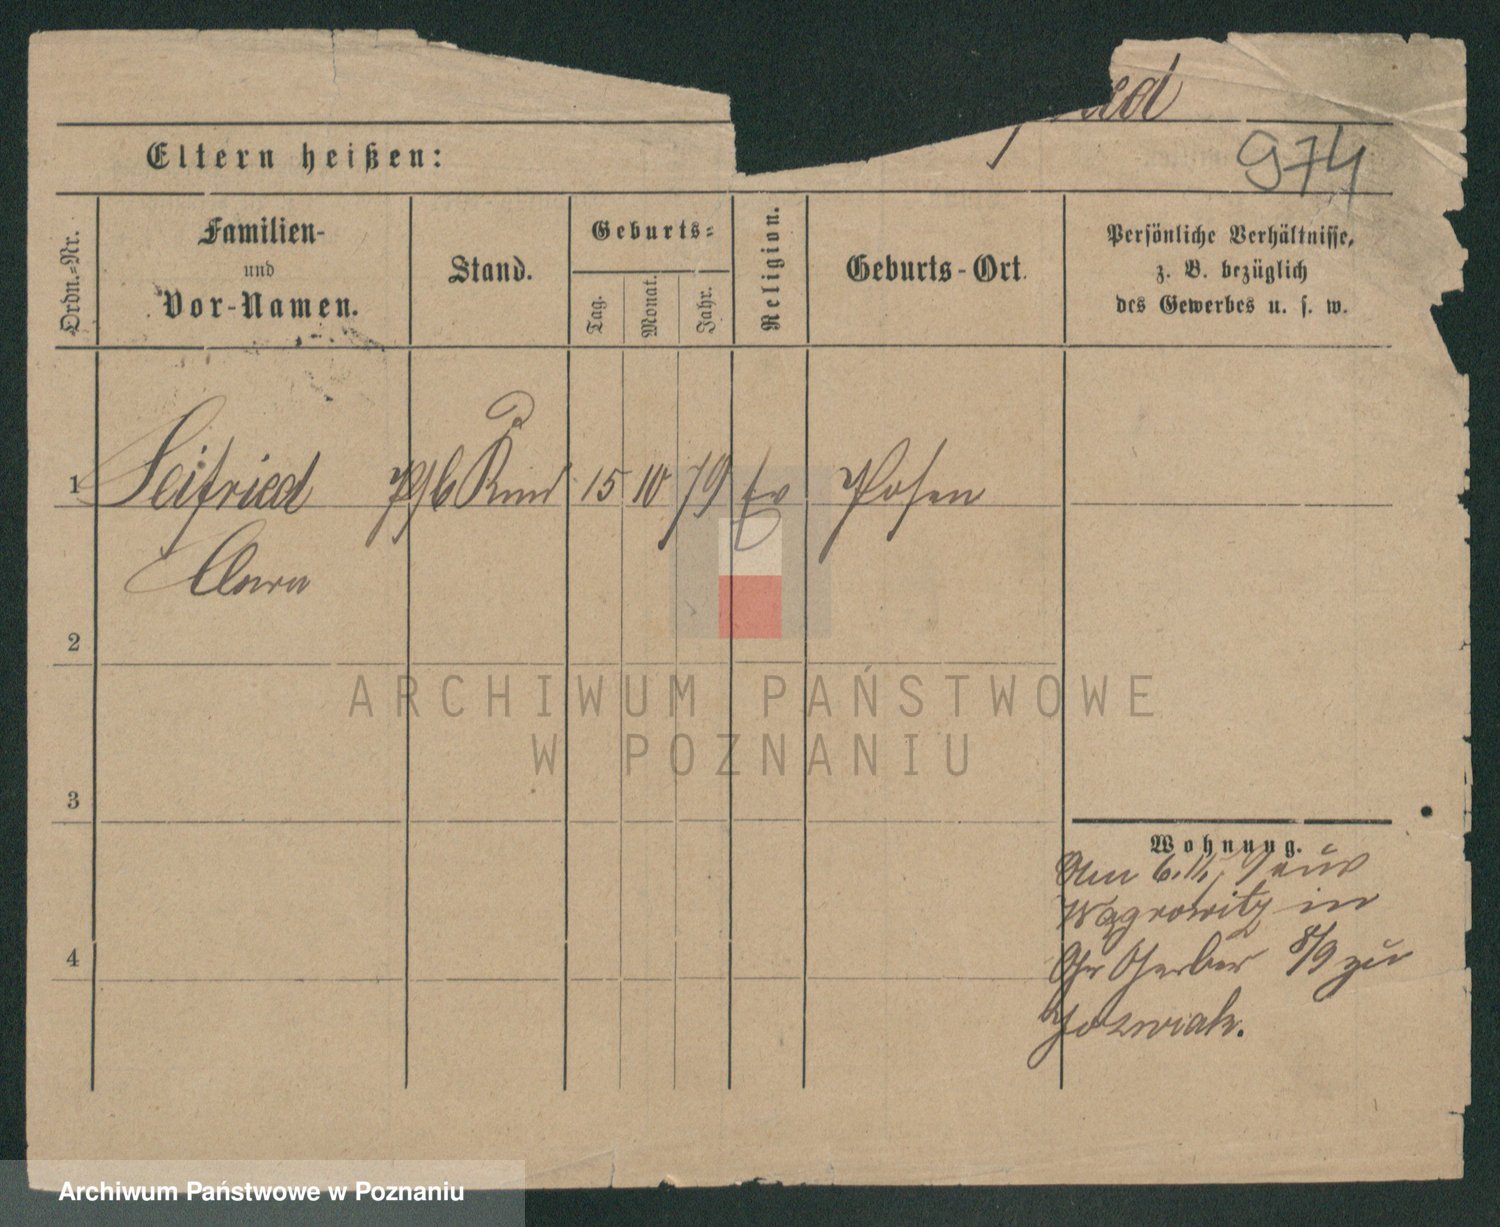 974
Eltern heißen:
Ordn.=Nr.
Familien-
und
Vor-Namen.
Stand.
Geburts=
Tag.
Monat.
Jahr.
Religion.
Geburts-Ort.
Persönliche Verhältnisse,
z. B. bezüglich
des Gewerbes u. s. w.
1 Seifried Kind 15 10 79 Ev Posen
Clara
2
3
4
Wohnung.
Am 6.
Wągrowitz in
Gr Gerber 8/9 zu
Jozwiak.
ARCHIWUM PAŃSTWOWE
W POZNANIU
Archiwum Państwowe w Poznaniu